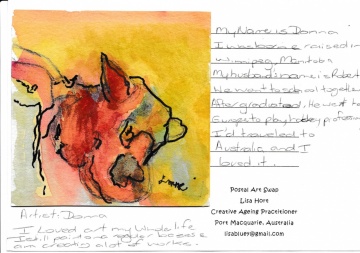 My Name is Donna
I was borne & raised in
Winnipeg, Manitoba
My husband name is Robert
We went to school together
After graduated. He went to
Europe to play hockey profession
I'd traveled to
Australia and I
loved it.
Postal Art Swap
Lisa Hort
Creative Ageing Practitioner
Port Macquarie, Australia
lisabluey@gmail.com
Artist: Donna
I Loved art my whole life
I still paint on a regular
am creating a lot of works.